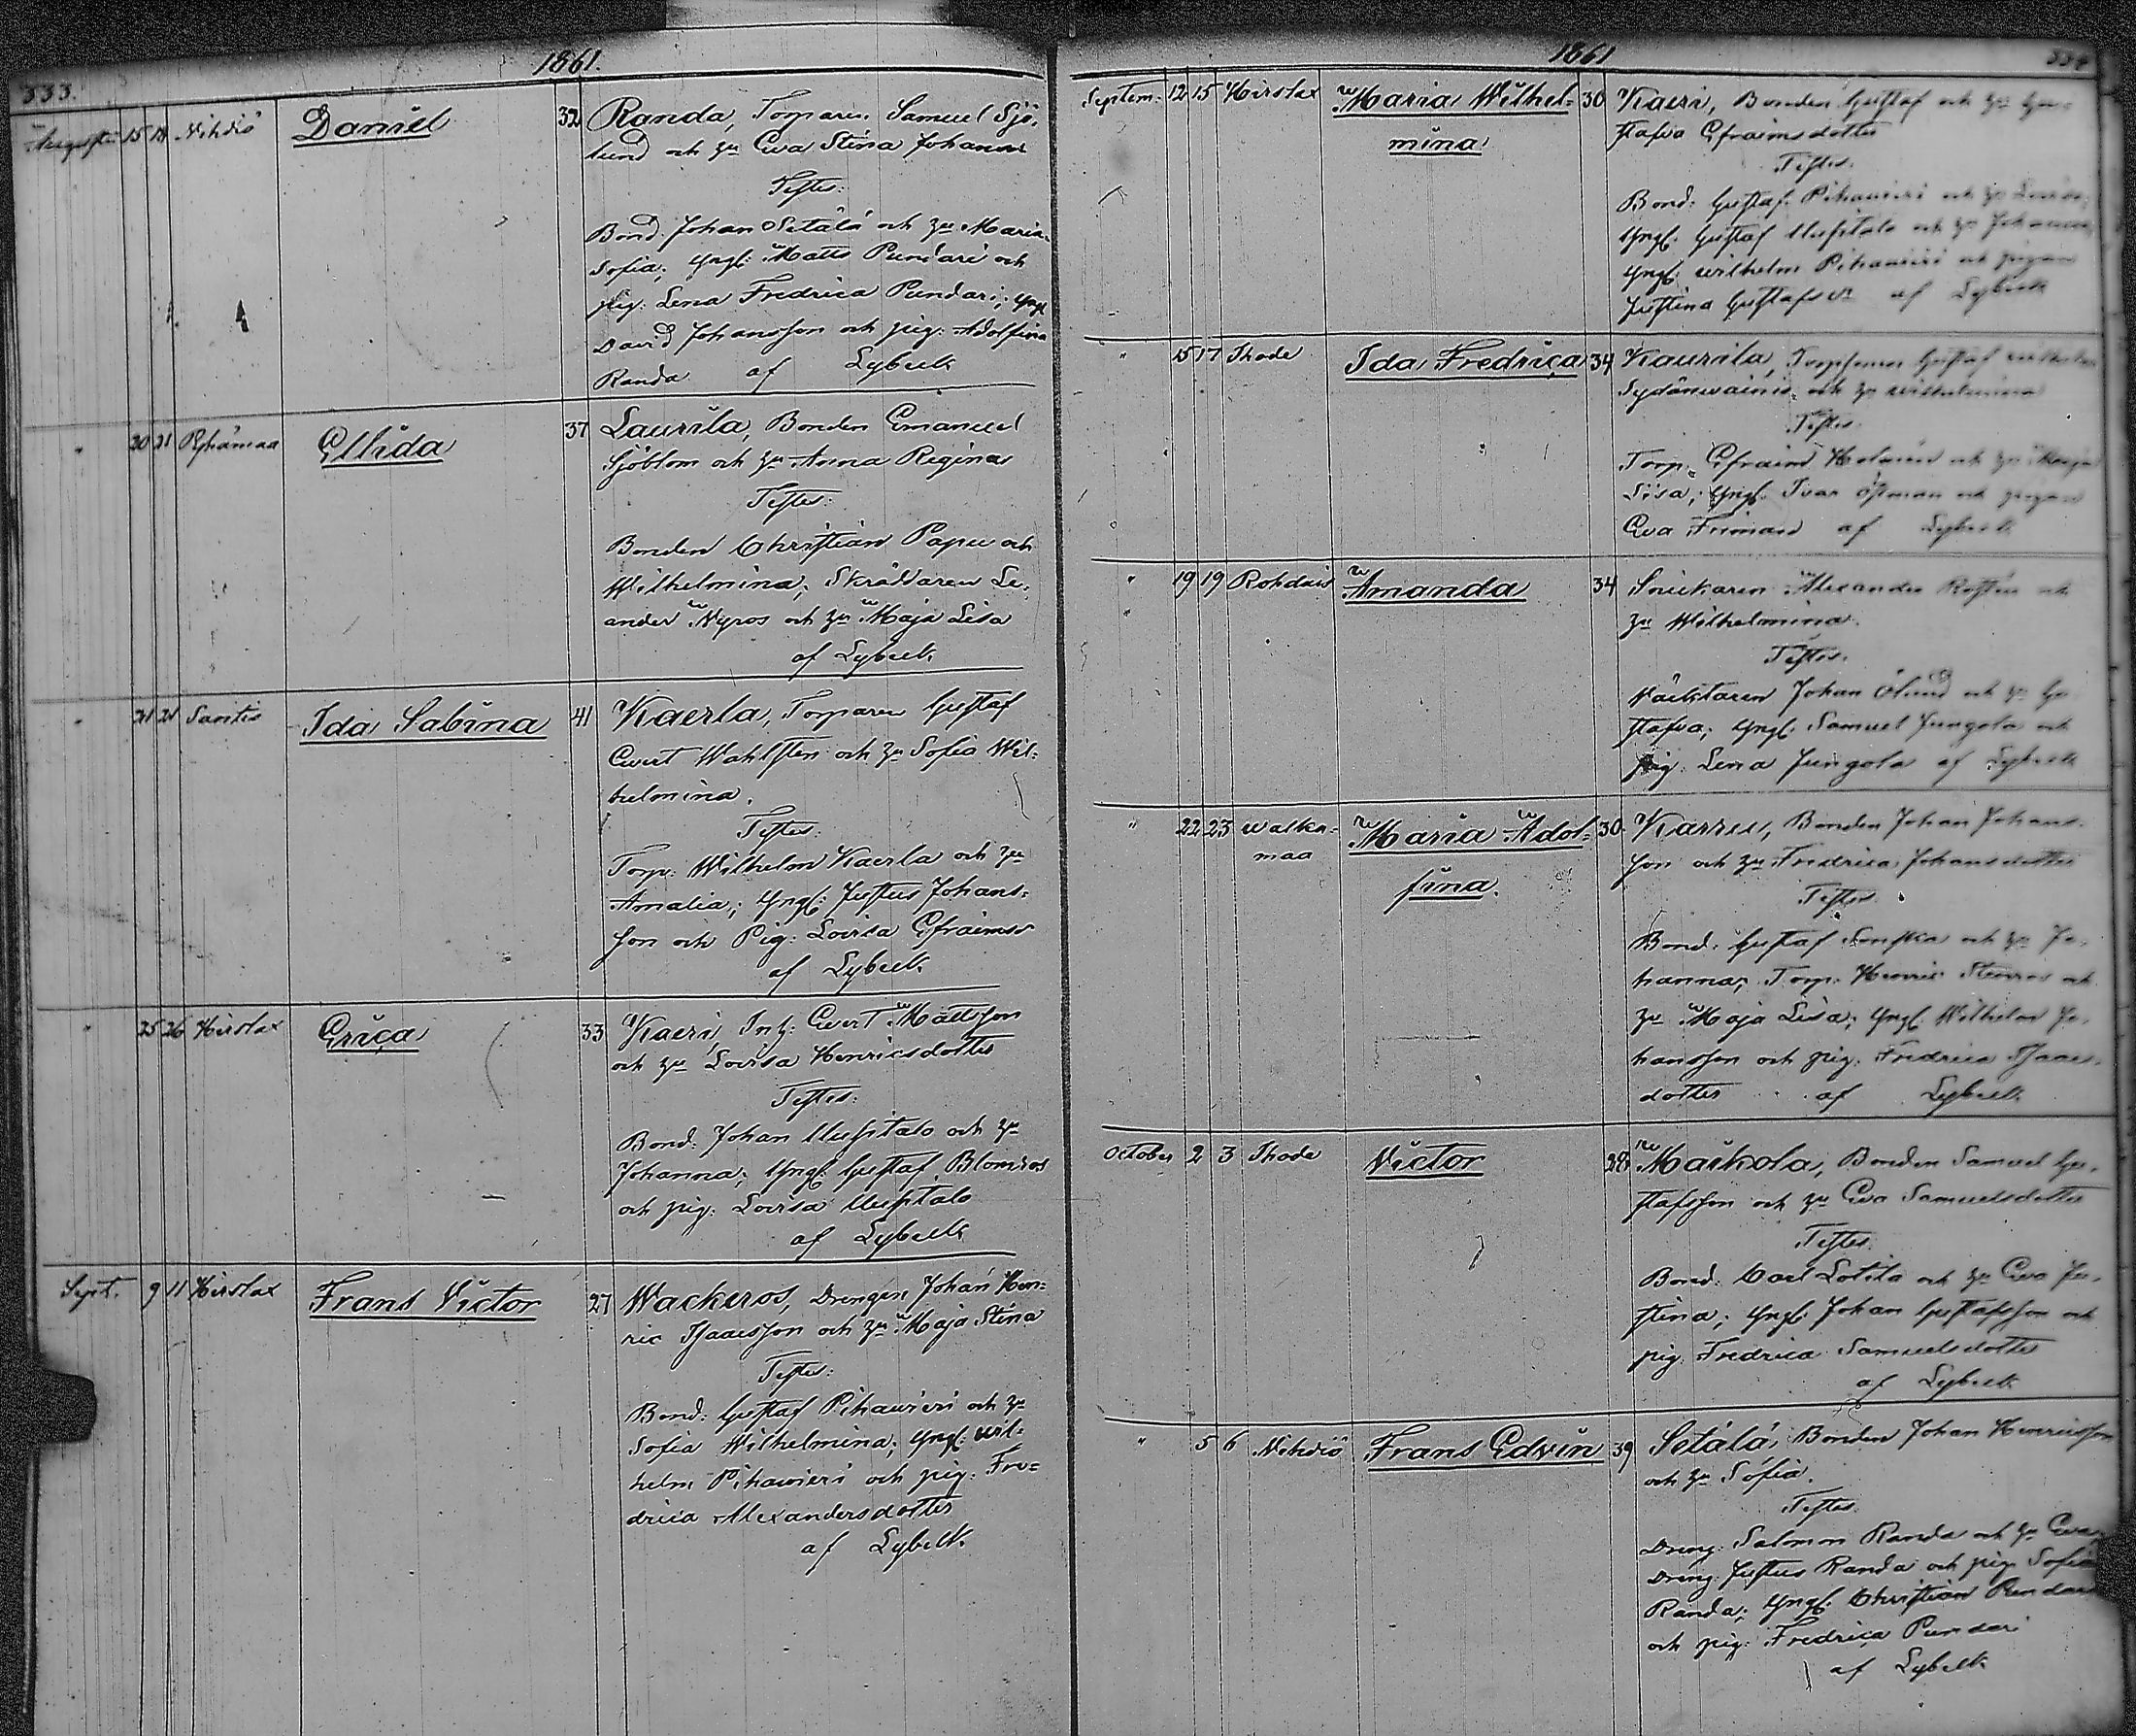 333.
1861.
Augusti 15 18 Nihdiö Daniel 32 Randa, Torparen Samuel Sjö-
lund och hu Eva Stina Johans
Testes:
Bond. Johan Setälä och hu Maria
Sofia; Yngl: Matts Pundari och
pig: Lena Fredrica Pundari; Yngl
David Johansson och pig: Adolfina
Randa af Lybeck
" 20 21 Ellida 37 Laurila, Bonden Emanuel
Sjöblom och hu Anna Regina
Testes:
Bonden Christian Papu och
Wilhelmina; Skräddaren Le-
ander Nyros och hu Maja Lisa
af Lybeck.
" 21 21 Santio Ida Sabina 41 Kaerla, Torparen Gustaf
Evert Wahlsten och hu Sofia Wil-
helmina.
Testes:
Torp: Wilhelm Kaerla och hu
Amalia; Yngl: Justus Johans-
son och Pig: Lovisa Efraimsd
af Lybeck.
" 25 26 Hirslax Erica 33 Kaeri, Inh: Evert Mattsson
och hu Lovisa Henricsdotter
Testes:
Bond: Johan Uusitalo och hu
Johanna; Yngl: Gustaf Blomros
och pig: Lovisa Uusitalo
af Lybeck
Sept. 9 11 Hirslax Frans Victor 27 Wackeros, Drengen Johan Hen-
ric Isaacsson och hu Maja Stina
Testes:
Bond: Gustaf Pihawieri och hu
Sofia Wilhelmina; Yngl: Wil-
helm Pihawieri och pig: Fre-
drica Alexandersdotter
af Lybeck.
1861
334
Septem: 12 15 Hirslax Maria Wilhel- 30 Kaeri, Bonden Gustaf och hu Gu-
mina stafva Efraimsdotter
Testes.
Bond: Gustaf Pihawieri och hu Lovisa;
Yngl: Gustaf Uusitalo och hu Johanna,
Yngl: Wilhelm Pihawieri och pigan
Justina Gustafsdr af Lybeck
" 15 17 Thode Ida Fredrica 34 Kaurila, Gustaf Wilhelm
och hu Wilhelmina
Testes
Torp: Efraim och hu Maja
Lisa; Yngl: Ivar Östman och pigan
Eva Friman af Lybeck
" 19 19 Rohdais Amanda 34 Snickaren Alexander och
hu Wilhelmina.
Testes.
Johan Ölund och hu Gu-
stafva; Yngl: Samuel Jungola och
pig: Lena Jungola af Lybeck
" 22 23 Walka- Maria Adol- 30 Karru, Bonden Johan Johans-
maa fina. son och hu Fredrica Johansdotter
Testes.
Bond: Gustaf och hu Jo-
hanna; Torp: Henric Stenros och
hu Maja Lisa; Yngl: Wilhelm Jo-
hansson och pig: Fredrica Isaacs-
dotter af Lybeck.
October 2 3 Thode Victor 28 Maikola, Bonden Samuel Gu-
stafsson och hu Eva Samuelsdotter
Testes.
Bond: Carl Lotila och hu Eva Ju-
stina; Yngl: Johan Gustafsson och
pig: Fredrica Samuelsdotter
af Lybeck
" 5 6 Nihdiö Frans Edvin 39 Setälä, Bonden Johan Henricsson
och hu Sofia.
Testes.
Dreng: Salomon Randa och hu Eva;
Dreng: Justus Randa och pig: Sofia
Randa; Yngl: Christian Pundari
och pig: Fredrica Pundari
af Lybeck